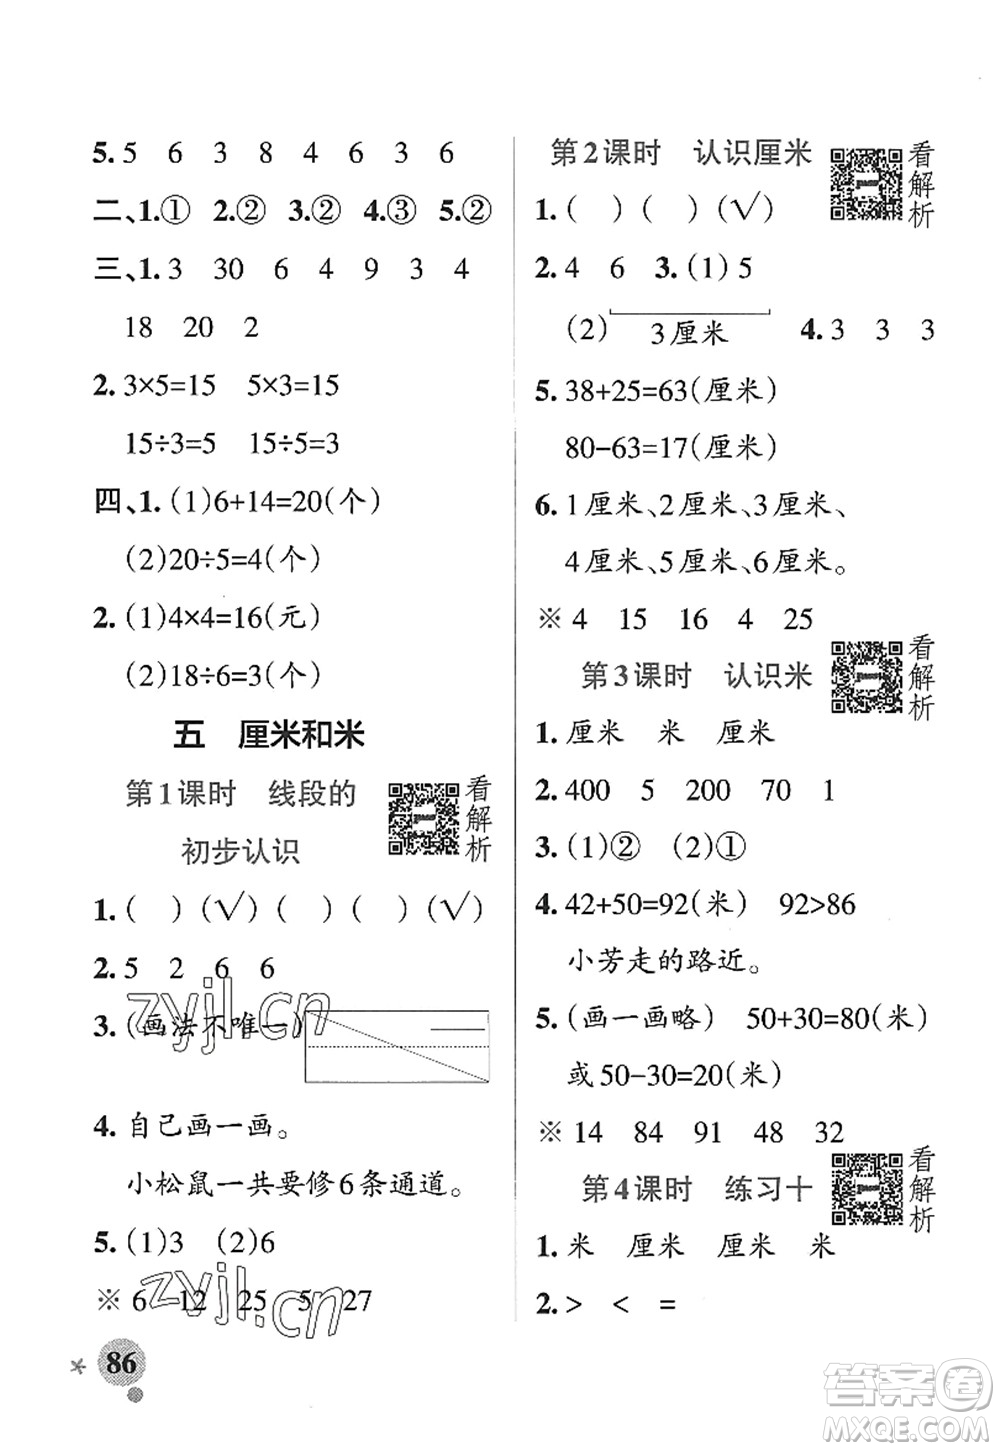 5. 5 6 3 8 4 6 3 6
二、1.① 2.② 3.② 4.③ 5.②
三、1.3 30 6 4 9 3 4
18 20 2
2. 3×5=15 5×3=15
15÷3=5 15÷5=3
四、1. (1)6+14=20(个)
(2)20÷5=4(个)
2. (1)4×4=16(元)
(2)18÷6=3(元)
五 厘米和米
第1课时 线段的
初步认识
看解析
1. ( ) (√) ( ) ( ) (√)
2. 5 2 6 6
3. (画法不唯一)
4. 自己画一画。
小松鼠一共要修6条通道。
5. (1)3 (2)6
※ 6 12 25 5 27
86
第2课时 认识厘米
看解析
1. ( ) ( ) (√)
2. 4 6 3. (1) 5
(2) 3厘米 4. 3 3 3
5. 38+25=63(厘米)
80-63=17(厘米)
6. 1厘米、2厘米、3厘米、
4厘米、5厘米、6厘米。
※ 4 15 16 4 25
第3课时 认识米
看解析
1. 厘米 米 厘米
2. 400 5 200 70 1
3. (1)② (2)①
4. 42+50=92(米) 92>86
小芳走的路近。
5. (画一画略) 50+30=80(米)
或50-30=20(米)
※ 14 84 91 48 32
第4课时 练习十
看解析
1. 米 厘米 厘米 米
2. > < =
zyjl.cn
zyjl.cn
答案圈
MXQE.COM